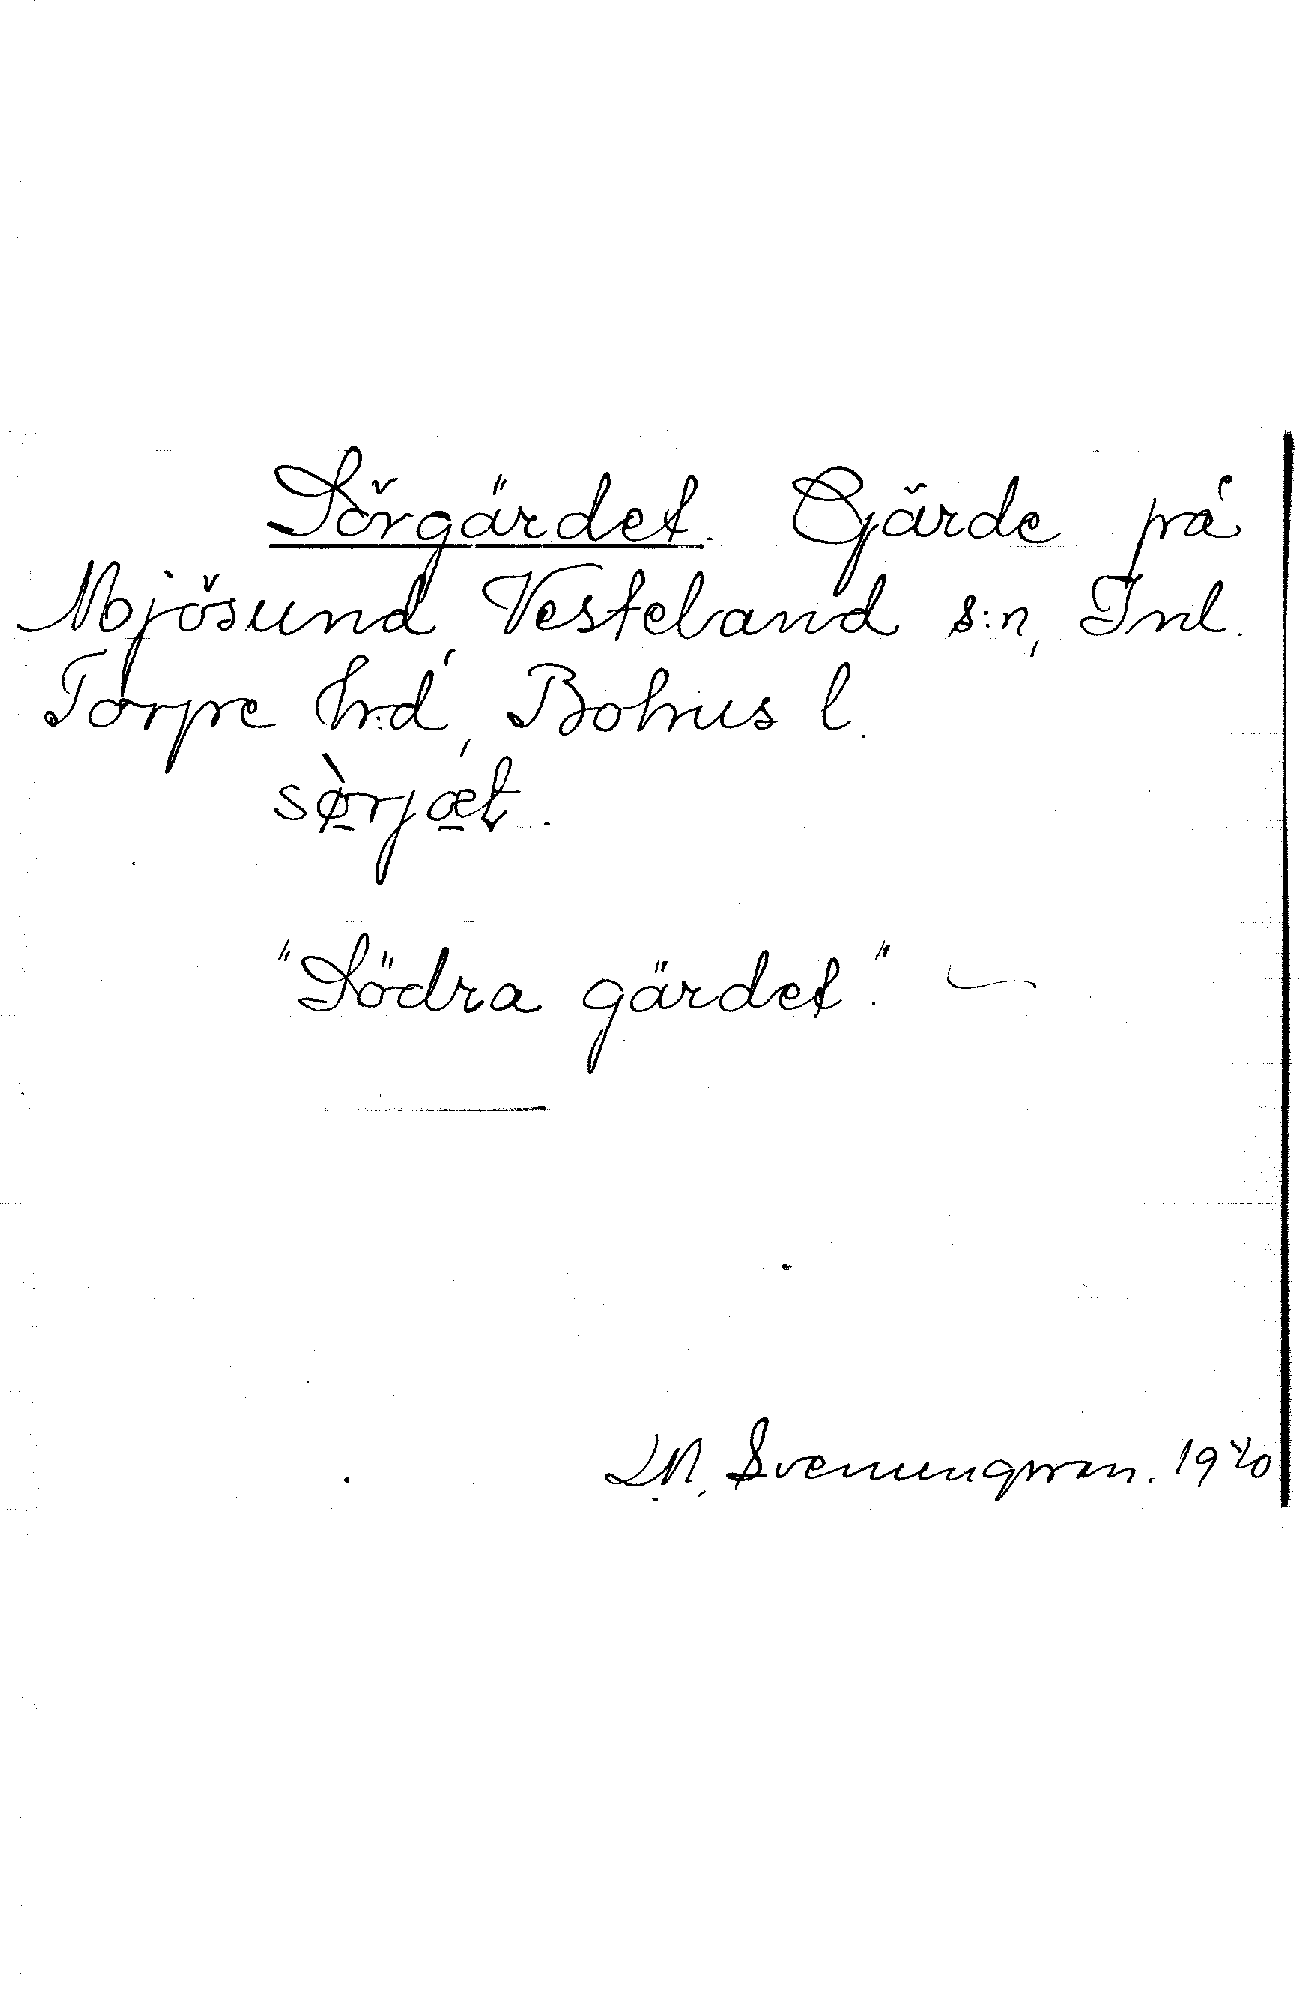 Sörgärdet. Gärde på
Mjösund, Vesterland s:n, Inl.
Torpe h:d, Bohus l.
sø̱̀rjæ̱t.
"Södra gärdet."
Svenungsson. 1920